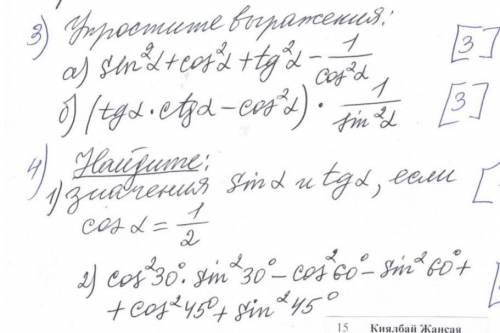 3) Упростите выражения:
а) sin²α+cos²α+tg²α − 1/cos²α [3]
б) (tgα·ctgα − cos²α) · 1/sin²α [3]
4) Найдите:
1) значения sinα и tgα, если
cosα = 1/2
2) cos²30°·sin²30° − cos²60° − sin²60° +
+ cos²45° + sin²45°
15 Киялбай Жансая